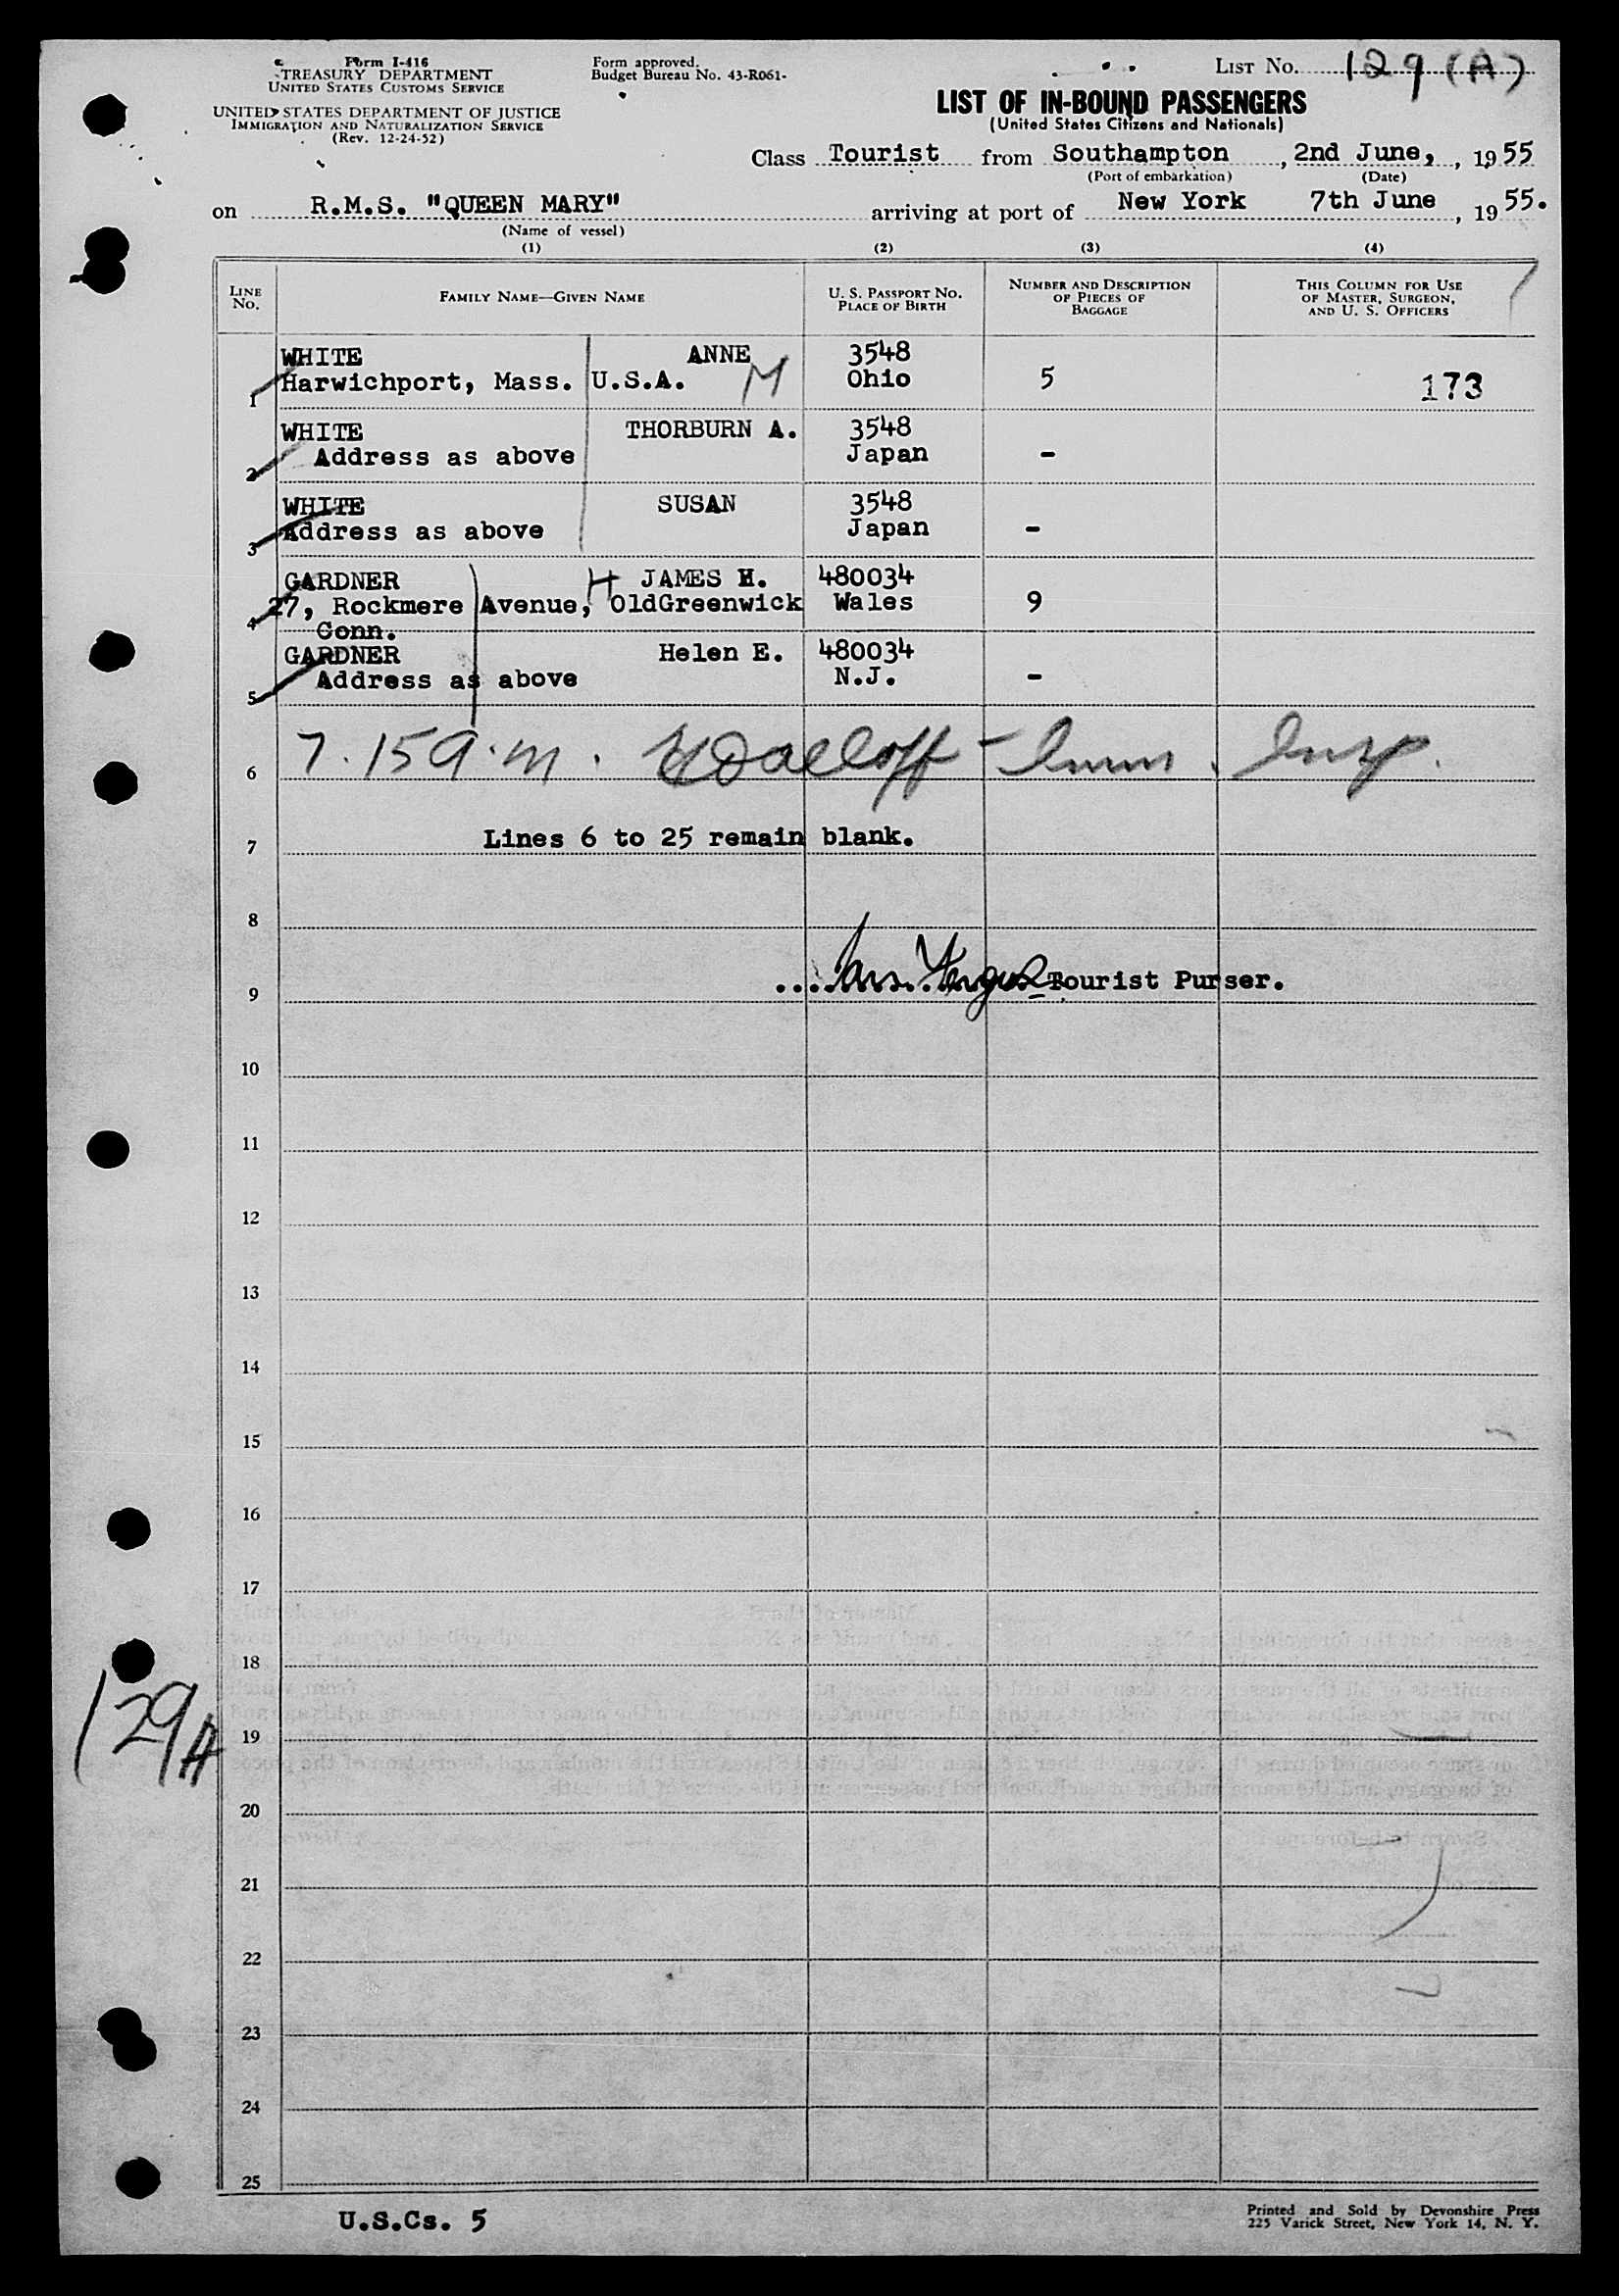 Form I-416
TREASURY DEPARTMENT
UNITED STATES CUSTOMS SERVICE
UNITED STATES DEPARTMENT OF JUSTICE
IMMIGRATION AND NATURALIZATION SERVICE
(Rev. 12-24-52)
Form approved.
Budget Bureau No. 43-R061-
LIST No. 129 (A)
LIST OF IN-BOUND PASSENGERS
(United States Citizens and Nationals)
Class Tourist from Southampton, 2nd June, , 1955
(Port of embarkation) (Date)
on R.M.S. "QUEEN MARY" arriving at port of New York 7th June, 1955.
(Name of vessel)
(1) (2) (3) (4)
LINE No. FAMILY NAME—GIVEN NAME U. S. PASSPORT NO. PLACE OF BIRTH NUMBER AND DESCRIPTION OF PIECES OF BAGGAGE THIS COLUMN FOR USE OF MASTER, SURGEON, AND U. S. OFFICERS
WHITE ANNE 3548
1 Harwichport, Mass. U.S.A. M Ohio 5 173
WHITE THORBURN A. 3548
2 Address as above Japan -
WHITE SUSAN 3548
3 Address as above Japan -
GARDNER H JAMES H. 480034
4 27, Rockmere Avenue, OldGreenwick Wales 9
Conn.
GARDNER Helen E. 480034
5 Address as above N.J. -
6 7.15 a.m.
7 Lines 6 to 25 remain blank.
8
9 Tourist Purser.
10
11
12
13
14
15
16
17
18
129A
19
20
21
22
23
24
25
U.S.Cs. 5
Printed and Sold by Devonshire Press
225 Varick Street, New York 14, N. Y.